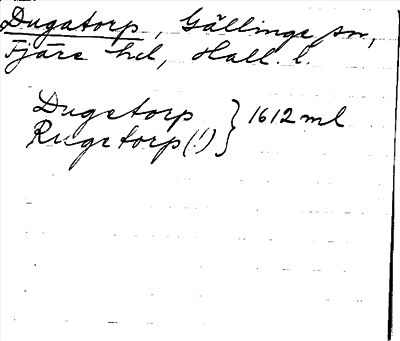 Dugatorp, Gällinge sn,
Fjäre hd, Hall. l.
Dugetorp
Rugetorp(!) } 1612 ml